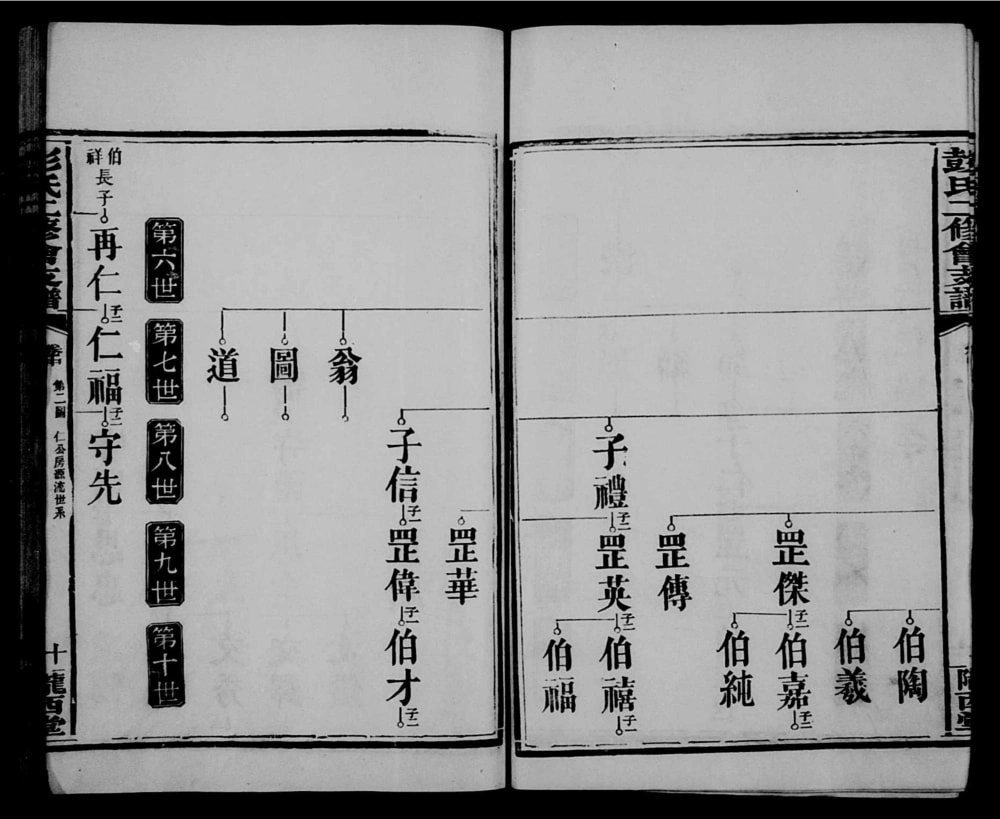 彭氏二修會支譜
隴西堂
伯陶
伯義
罡傑 子二
伯嘉 子二
伯純
罡傳
子禮 子二
罡英 子二
伯禧 子二
伯福
罡華
子信 子二
罡偉 子一
伯才 子一
翁
圖
道
第六世
第七世
第八世
第九世
第十世
伯祥長子
再仁 子二
仁福 子二
守先
彭氏二修會支譜
第二圖 仁公房源流世系
十
隴西堂